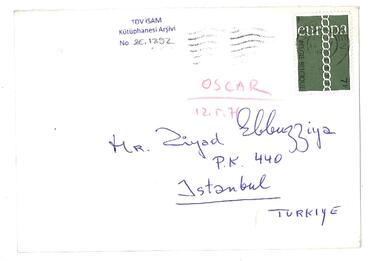 TDV İSAM
Kütüphanesi Arşivi
No 2E.1292
europa
OSCAR
Mr. Ziyad Ebbuzziya
P.K. 440
Istanbul
TURKIYE